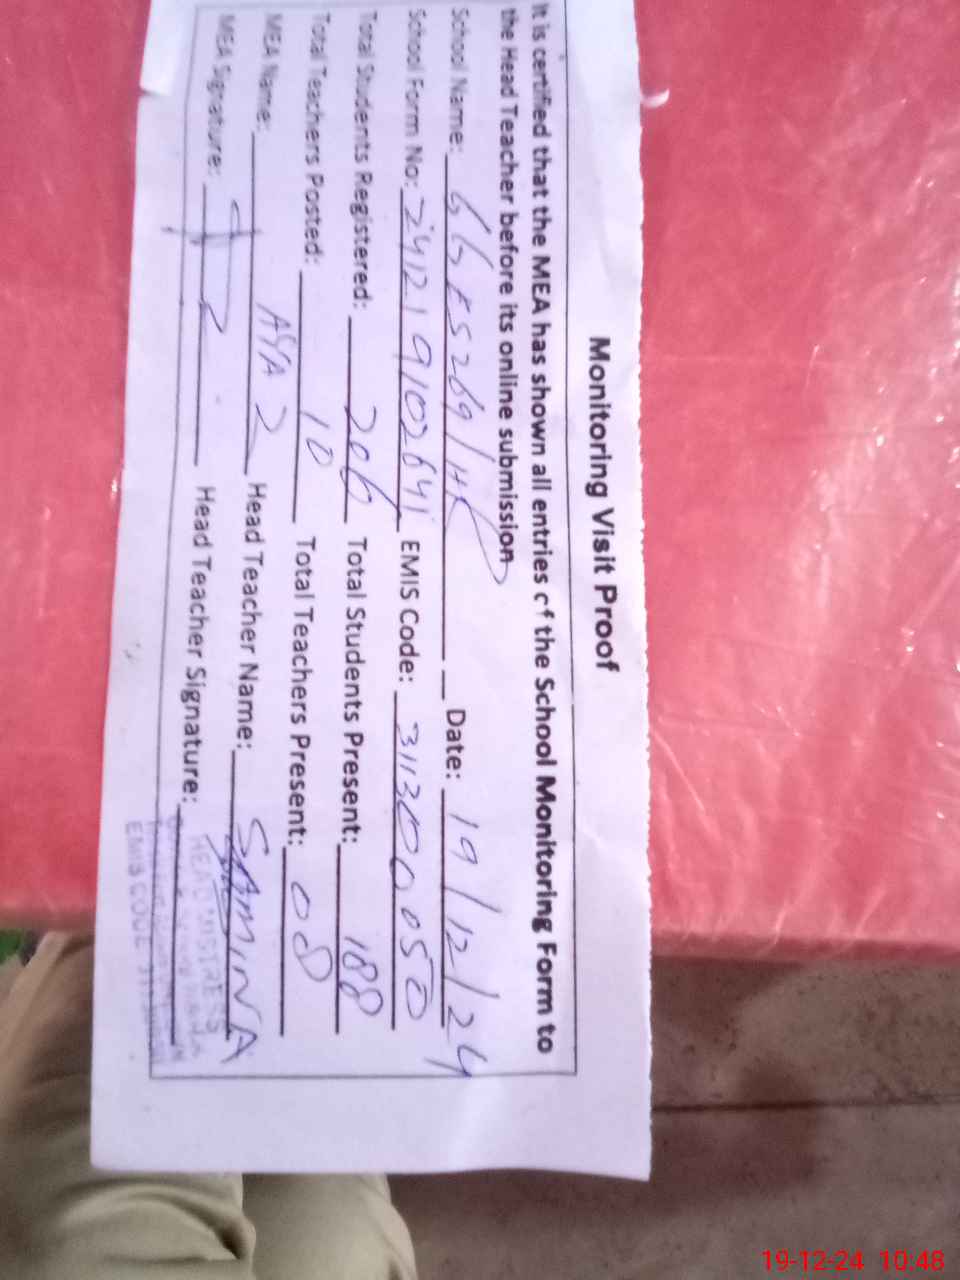 Monitoring Visit Proof
It is certified that the MEA has shown all entries of the School Monitoring Form to
the Head Teacher before its online submission
School Name: GGES 269/HR Date: 19/12/24
School Form No: 241219102641 EMIS Code: 31130050
Total Students Registered: 206 Total Students Present: 188
Total Teachers Posted: 10 Total Teachers Present: 08
MEA Name: Head Teacher Name: SAMINA
MEA Signature: Head Teacher Signature:
HEADMISTRESS
EMIS CODE
19-12-24 10:48